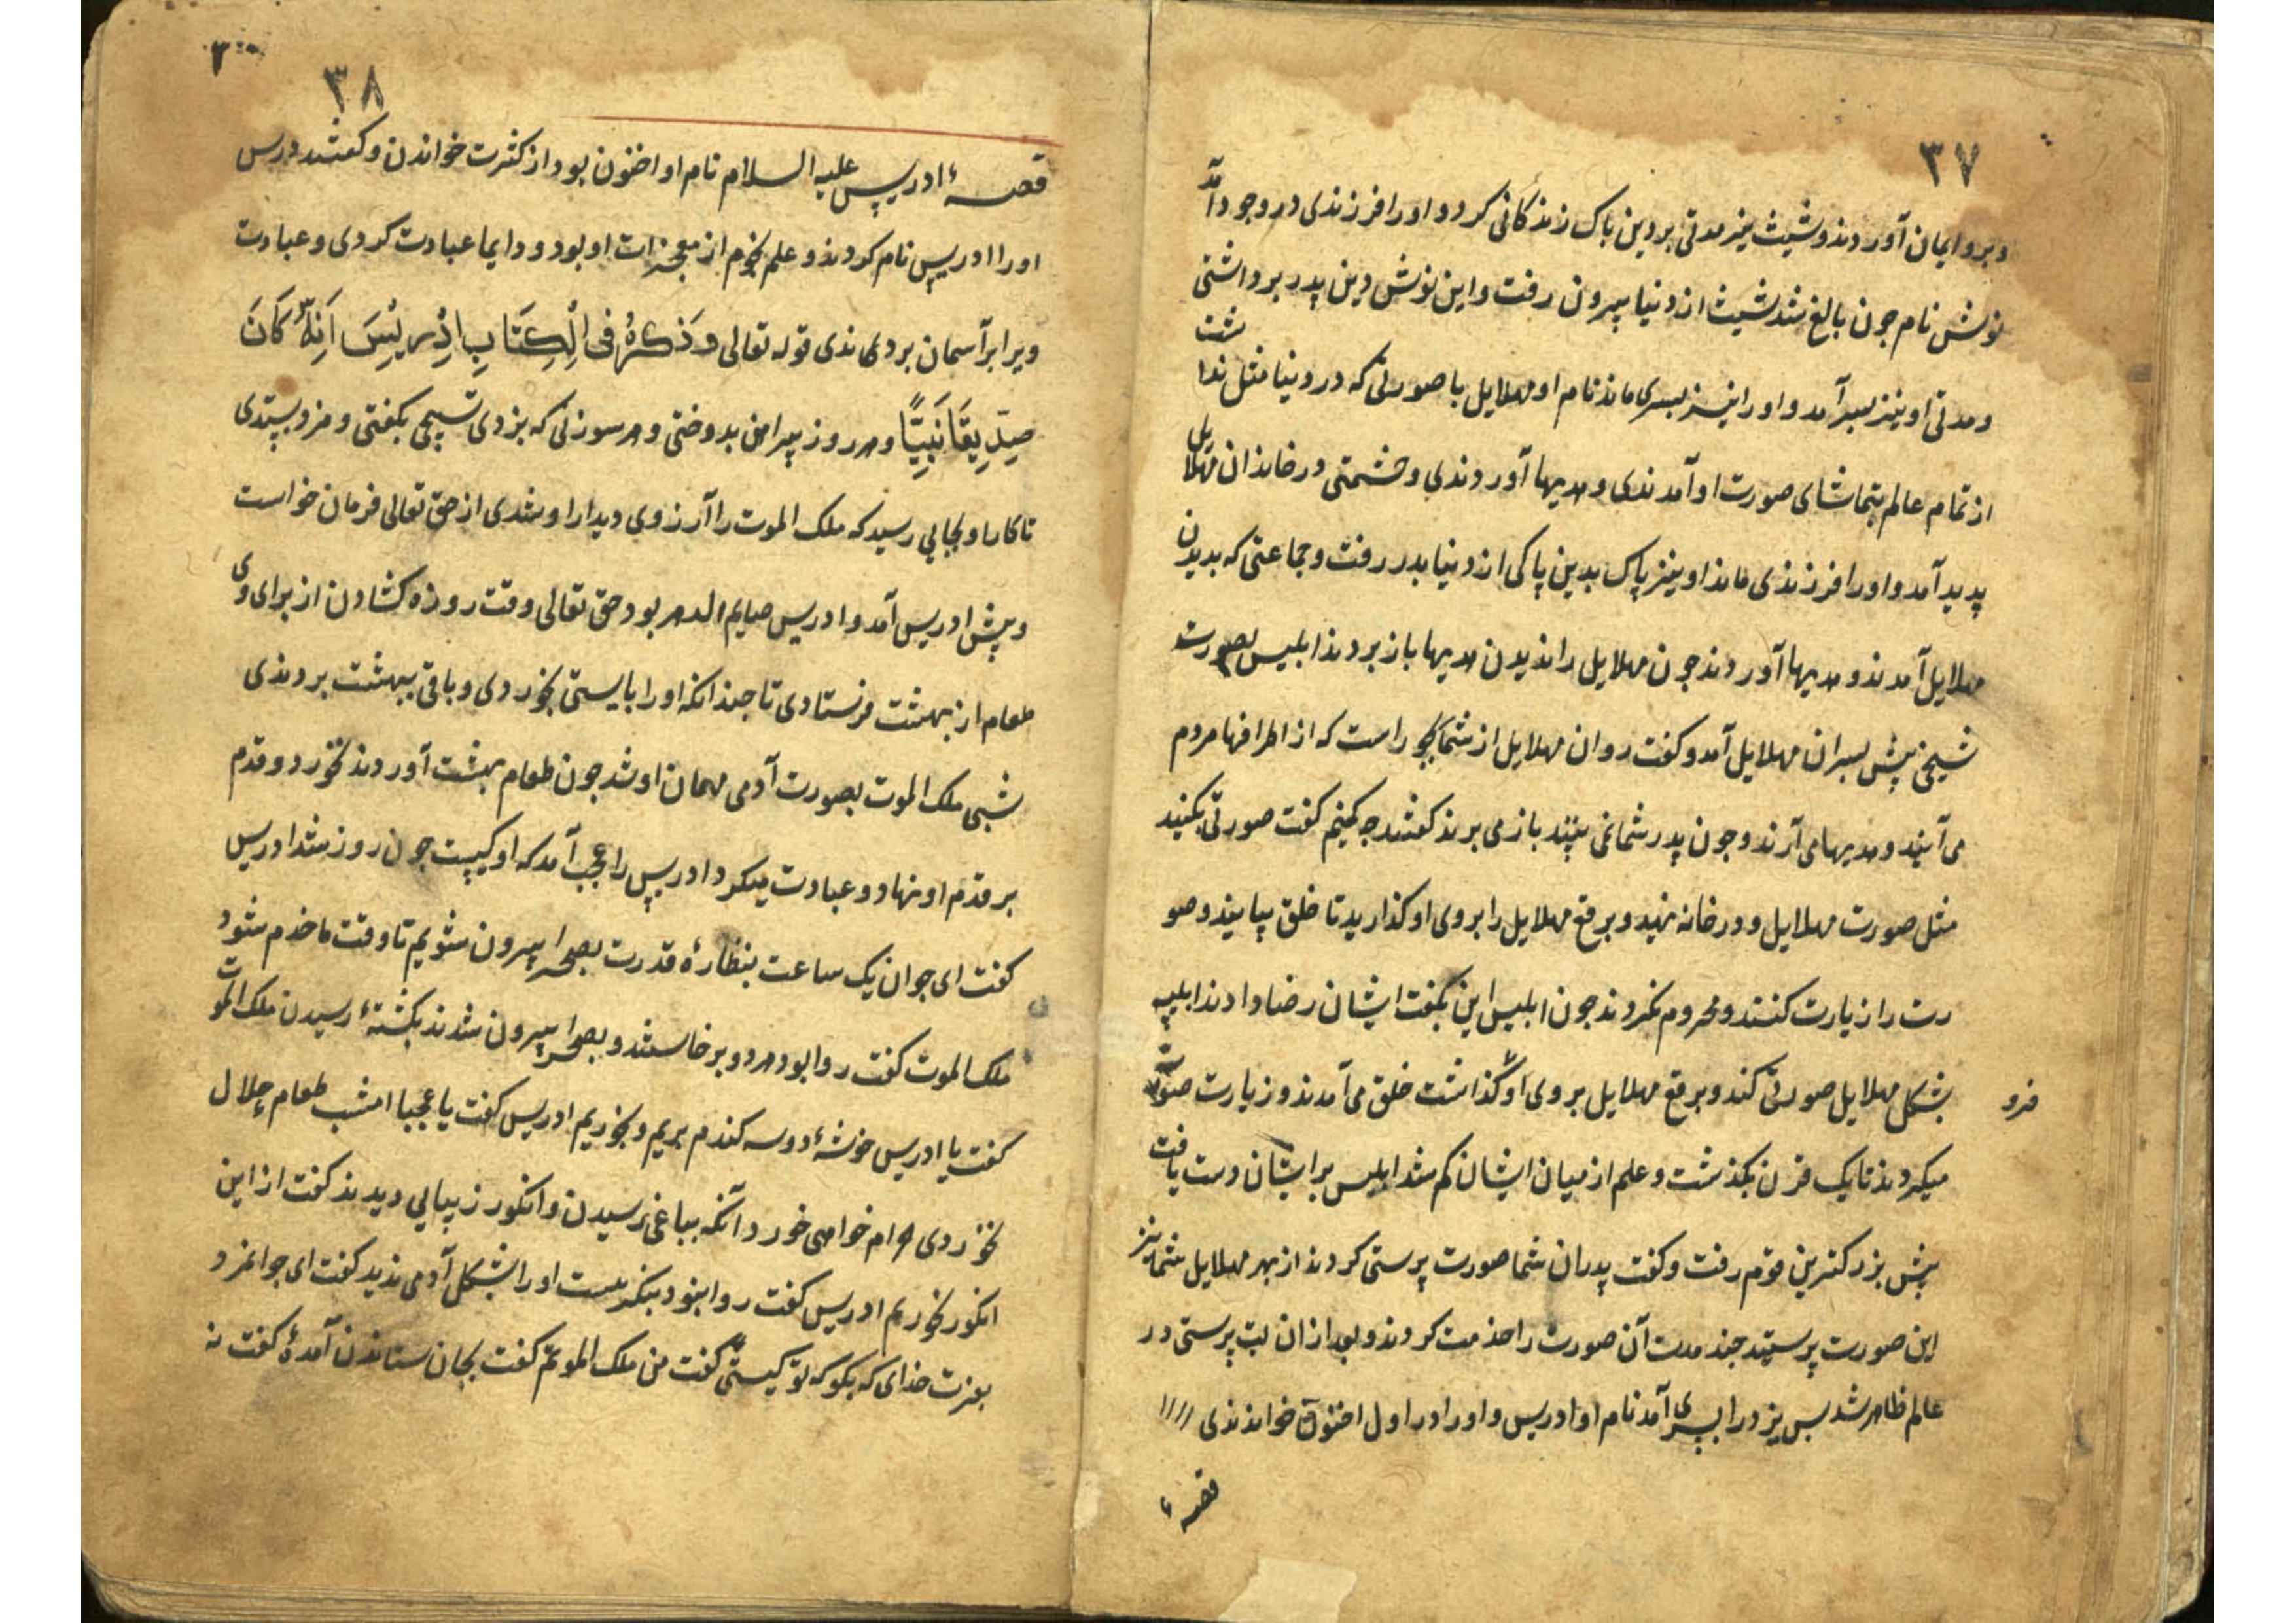 ۳۷
و برو ایمان آوردند و شیث نیز مدتی بر دین پاک زندکانی کرد و اورا فرزندی در وجود آمد
نوش نام جون بالغ شد شیث از دنیا بیرون رفت و این نوش دین پدر برداشتی
و مدتی او نیز بسر آمد و اورا نیز پسری ماند نام او مهلایل با صورتی که در دنیا مثل نداشت
از تمام عالم بتماشای صورت او آمدندی و هدیها آوردندی و حشمتی در خاندان مهلایل
پدید آمد و اورا فرزندی ماند او نیز پاک بدین پاکی از دنیا بدر رفت و جماعتی که بدیدن
مهلایل آمدند و هدیها آوردند جون مهلایل را ندیدن هدیها باز بردند ابلیس بصورت
شیخی پیش پسران مهلایل آمد و کفت روان مهلایل از شما است که از اطرافها مردم
می آیند و هدیها می آرند و جون پدر شما نمی بینند باز می برند کفتند جه کنیم کفت صورتی بکنید
مثل صورت مهلایل و در خانه نهید و برقع مهلایل را بروی او کذارید تا خلق بیایند و صو
رت را زیارت کنند و محروم نکردند جون ابلیس این بکفت ایشان رضا دادند ابلیس
بشکل مهلایل صورتی کند و برقع مهلایل بروی او فرو کذاشت خلق می آمدند و زیارت صورت
میکردند تا یک قرن بکذشت و علم از میان ایشان کم شد ابلیس بر ایشان دست یافت
پیش بزرکترین قوم رفت و کفت پدران شما صورت پرستی کردند از بهر مهلایل شما نیز
این صورت پرستید جند مدت آن صورت را خدمت کردند و بعد ازان بت پرستی در
عالم ظاهر شد بس یزد را پسری آمد نام او ادریس و اورا در اول اخنون خواندندی
قصهٔ
۳۸
قصهٔ ادریس علیه السلام نام او اخنون بود از کثرت خواندن و کفتند درس
اورا ادریس نام کردند و علم نجوم از معجزات او بود و دایما عبادت کردی و عبادت
ویرا بر آسمان بردندی قوله تعالی وَذْكُرْ فِی الْكِتَابِ اِدْرِیْسَ اِنَّهُ كَانَ
صِدِّیقًا نَبِیًّا و هر روز پیراهن بدوختی و هر سوزنی که بزدی تسبیحی بکفتی و مزد بستدی
تا کار او بجایی رسید که ملک الموت را آرزوی دیدار او شدی از حق تعالی فرمان خواست
و پیش ادریس آمد و ادریس صایم الدهر بود حق تعالی وقت روزه کشادن از برای وی
طعام از بهشت فرستادی تا جندانکه اورا بایستی بخوردی و باقی ببهشت بردندی
شبی ملک الموت بصورت آدمی مهمان او شد جون طعام بهشت آوردند نخورد و قدم
بر قدم او نهاد و عبادت میکرد ادریس را عجب آمد که او کیست جون روز شد ادریس
کفت ای جوان یک ساعت بنظارهٔ قدرت بصحرا بیرون شویم تا وقت ما خرم شود
ملک الموت کفت روا بود هر دو برخاستند و بصحرا بیرون شدند بکشتهٔ رسیدن ملک الموت
کفت یا ادریس خوشهٔ دو سه کندم بریم و بخوریم ادریس کفت یا عجبا امشب طعام حلال
نخوردی حرام خواهی خورد آنکه بباغی رسیدن و انکور زیبایی دیدند کفت از این
انکور بخوریم ادریس کفت روا نبود بنکریست اورا بشکل آدمی ندید کفت ای جوانمرد
بعزت خدای که بکو که تو کیستی کفت من ملک الموتم کفت بجان ستاندن آمدهٔ کفت نه